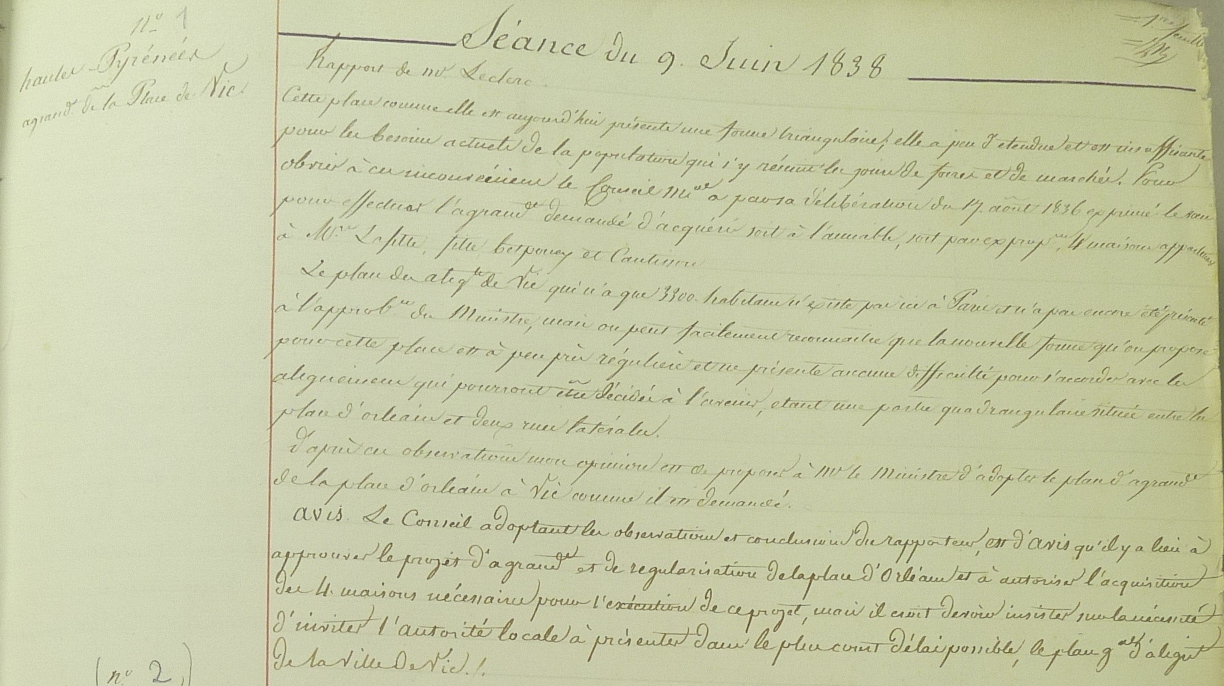 n° 1
hautes-Pyrénées
agrand.nt de la Place de Vic.
Séance du 9. Juin 1838
Rapport de Mr. Leclerc.
Cette place comme elle est aujourd'hui présente une forme triangulaire; elle a peu d'étendue et est insuffisante
pour les besoins actuels de la population qui s'y réunit les jours de foires et de marchés. Pour
obvier à cet inconvénient le Conseil Mcal a par sa délibération du 17 août 1836 exprimé le vœu
pour effectuer l'agrandt demandé d'acquérir soit à l'amiable, soit par exprop.on, 4 maisons appartenant
à Mrs Lafitte, et
Le plan des alignts de Vic qui n'a que 3300 habitans n'existe pas ici à Paris et n'a pas encore été présenté
à l'approb.on du Ministre, mais on peut facilement reconnaitre que la nouvelle forme qu'on propose
pour cette place est à peu près régulière et ne présente aucune difficulté pour s'accorder avec les
alignemens qui pourront être décidés à l'avenir, étant une partie quadrangulaire située entre la
place d'orléans et deux rues latérales.
D'après ces observations mon opinion est de proposer à Mr le Ministre d'adopter le plan d'agrandt
de la place d'orléans à Vic comme il est demandé.
avis. Le Conseil adoptant les observations et conclusions du rapporteur, est d'avis qu'il y a lieu à
approuver le projet d'agrandt et de régularisation de la place d'Orléans et à autoriser l'acquisition
des 4 maisons nécessaires pour l'exécution de ce projet, mais il croit devoir insister sur la nécessité
d'inviter l'autorité locale à présenter dans le plus court délai possible, le plan gal d'alignt
de la Ville de Vic.
(n° 2)